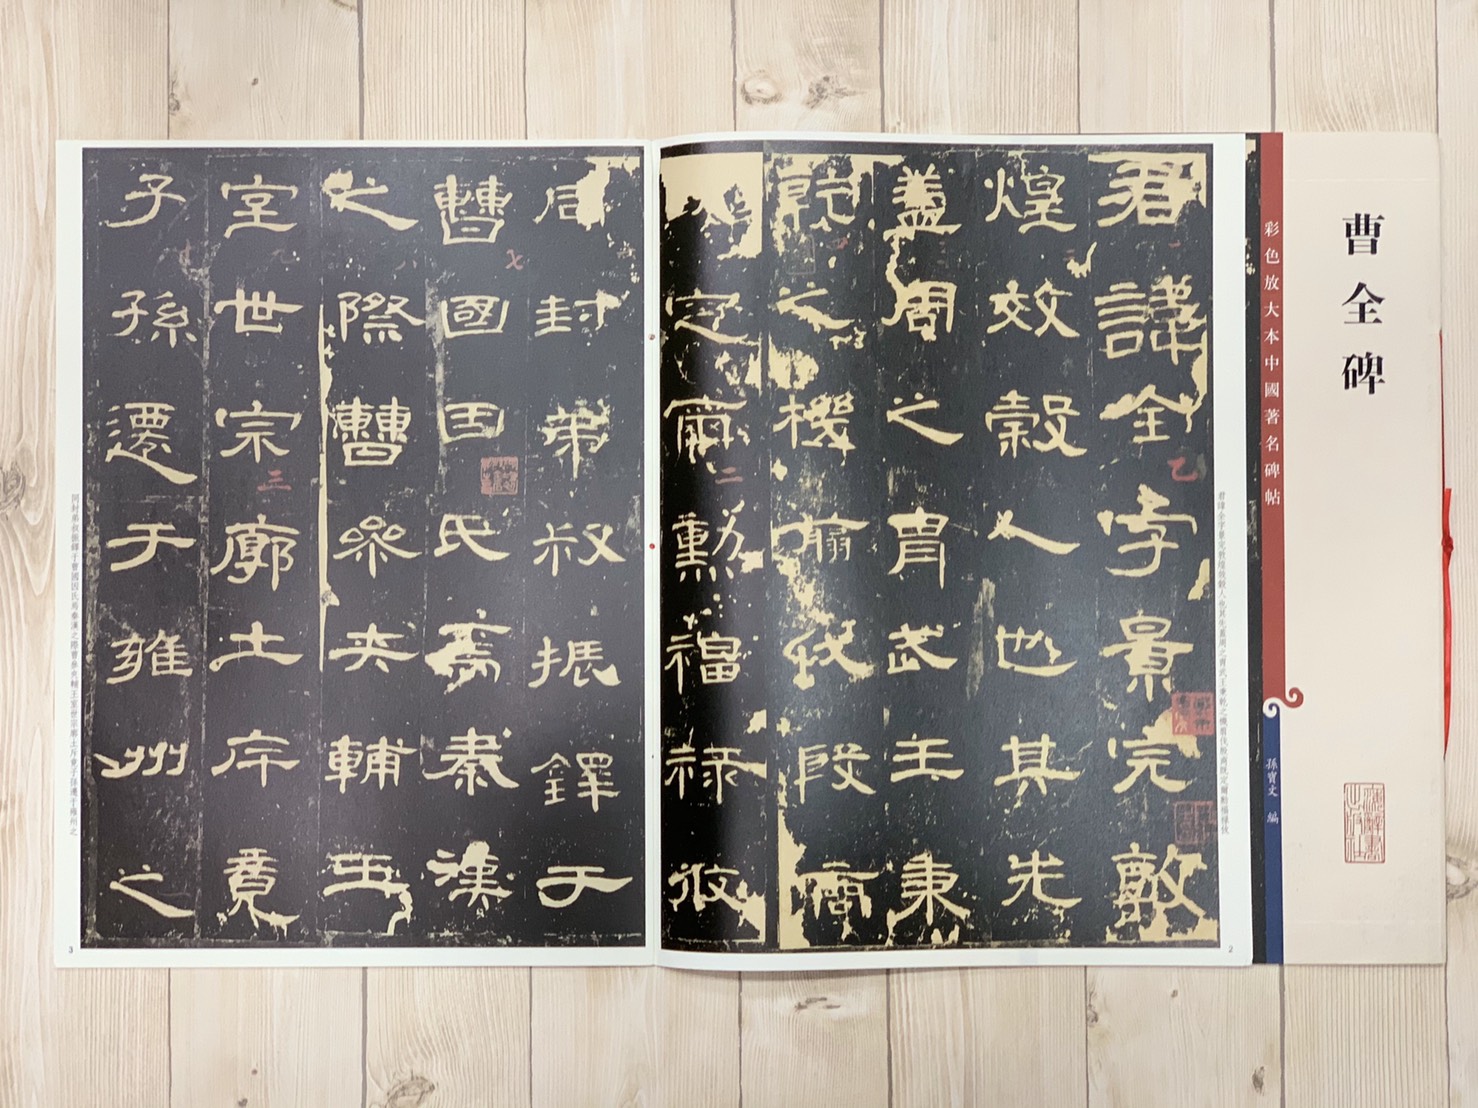 曹全碑
彩色放大本中國著名碑帖
孫寶文 編
君諱全字景完敦
煌效穀人也其先
蓋周之胄武王秉
乾之機翦伐殷商
定爾勳福祿攸
同封弟叔振鐸于
曹國因氏焉秦漢
之際曹參夾輔王
室世宗廓土斥竟
子孫遷于雍州之
君諱全字景完敦煌效穀人也其先蓋周之胄武王秉乾之機翦伐殷商既定爾勳福祿攸
同封弟叔振鐸于曹國因氏焉秦漢之際曹參夾輔王室世宗廓土斥竟子孫遷于雍州之
2
3